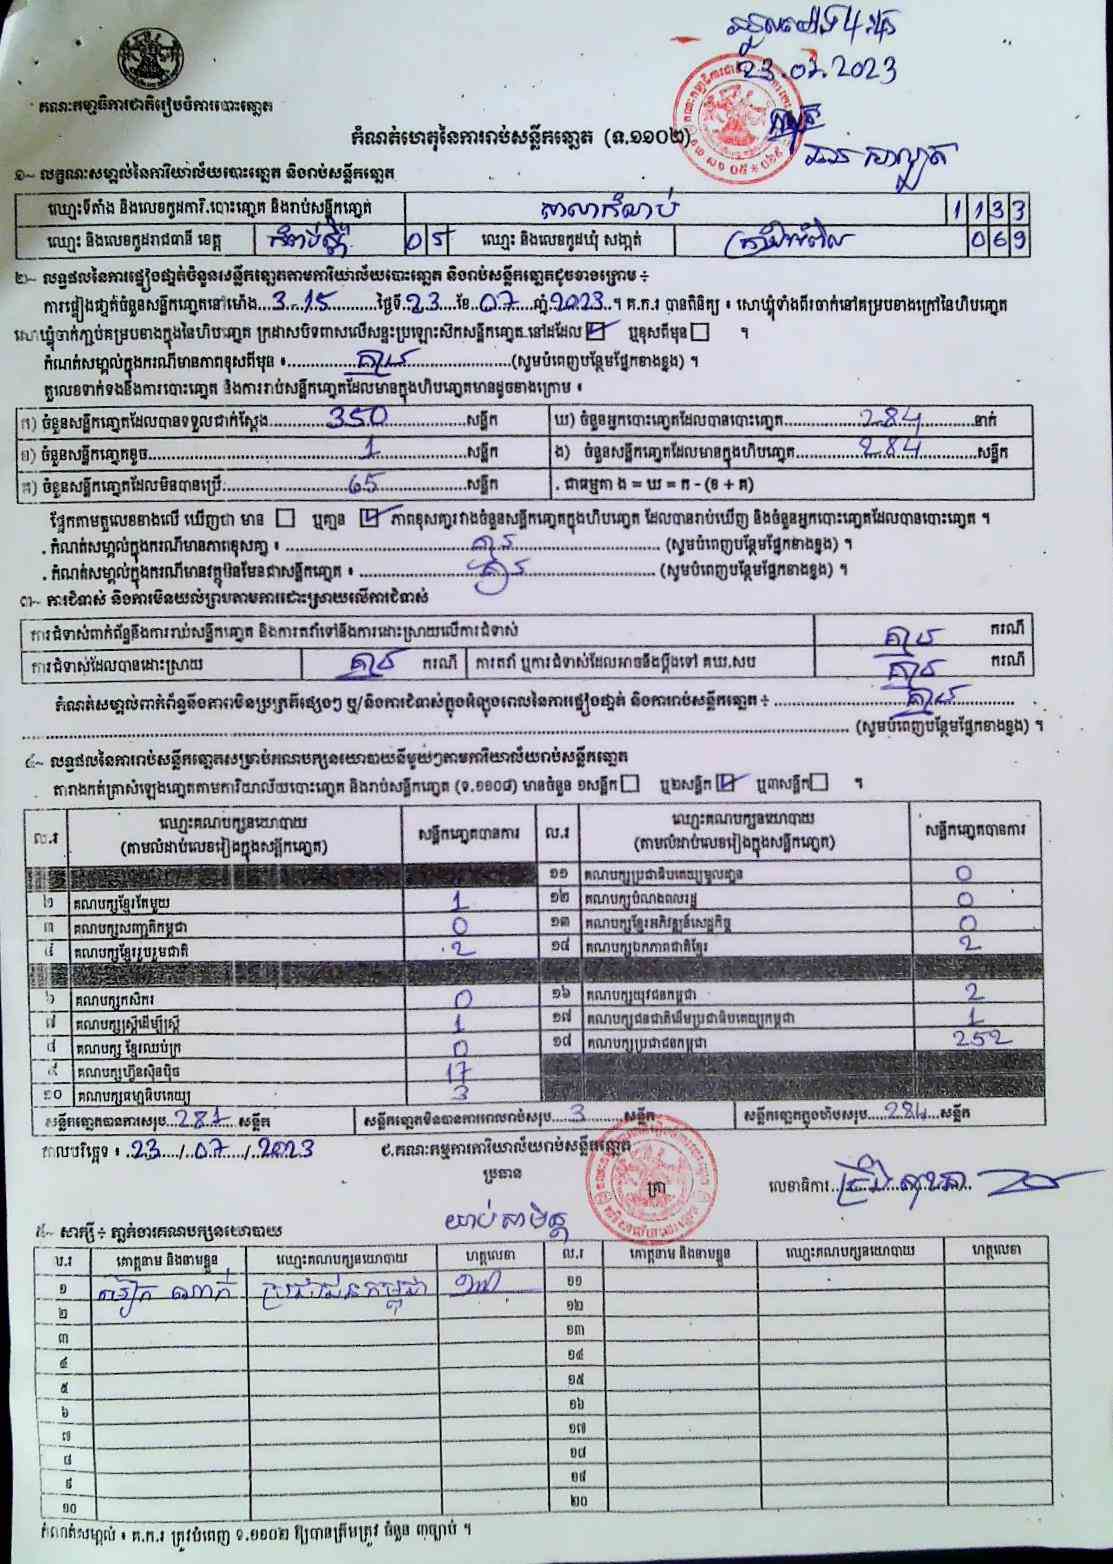 គណៈកម្មាធិការជាតិរៀបចំការបោះឆ្នោត
ទទួលម៉ោង
23.07.2023
កំណត់ហេតុនៃការរាប់សន្លឹកឆ្នោត (ទ.១១០២)
១~ លក្ខណៈសម្គាល់នៃការិយាល័យបោះឆ្នោត និងរាប់សន្លឹកឆ្នោត
ឈ្មោះទីតាំង និងលេខកូដការិ.បោះឆ្នោត និងរាប់សន្លឹកឆ្នោត 1133
ឈ្មោះ និងលេខកូដរាជធានី ខេត្ត កំពង់ស្ពឺ 05 ឈ្មោះ និងលេខកូដឃុំ សង្កាត់ 069
២~ លទ្ធផលនៃការផ្ទៀងផ្ទាត់ចំនួនសន្លឹកឆ្នោតតាមការិយាល័យបោះឆ្នោត និងរាប់សន្លឹកឆ្នោតដូចខាងក្រោម ៖
ការផ្ទៀងផ្ទាត់ចំនួនសន្លឹកឆ្នោតនៅម៉ោង 3.15 ថ្ងៃទី 23 ខែ 07 ឆ្នាំ 2023 ។ គ.ក.រ បានពិនិត្យ ៖ សោឃ្មុំទាំងពីរចាក់នៅគម្របខាងក្រៅនៃហិបឆ្នោត
សោឃ្មុំចាក់ភ្ជាប់គម្របខាងក្នុងនៃហិបឆ្នោត ក្រដាសបិទពាសលើសន្ទះប្រឡោះសៀតសន្លឹកឆ្នោត នៅដដែល ☑ ឬខុសពីមុន ☐ ។
កំណត់សម្គាល់ក្នុងករណីមានភាពខុសពីមុន ៖ គ្មាន (សូមបំពេញបន្ថែមផ្នែកខាងខ្នង) ។
តួលេខទាក់ទងនឹងការបោះឆ្នោត និងការរាប់សន្លឹកឆ្នោតដែលមានក្នុងហិបឆ្នោតមានដូចខាងក្រោម ៖
ក) ចំនួនសន្លឹកឆ្នោតដែលបានទទួលជាក់ស្តែង 350 សន្លឹក ឃ) ចំនួនអ្នកបោះឆ្នោតដែលបានបោះឆ្នោត 284 នាក់
ខ) ចំនួនសន្លឹកឆ្នោតខូច 1 សន្លឹក ង) ចំនួនសន្លឹកឆ្នោតដែលមានក្នុងហិបឆ្នោត 284 សន្លឹក
គ) ចំនួនសន្លឹកឆ្នោតដែលមិនបានប្រើ 65 សន្លឹក . ជាធម្មតា ង = ឃ = ក - (ខ + គ)
ផ្អែកតាមតួលេខខាងលើ ឃើញថា មាន ☐ ឬគ្មាន ☑ ភាពខុសគ្នារវាងចំនួនសន្លឹកឆ្នោតក្នុងហិបឆ្នោត ដែលបានរាប់ឃើញ និងចំនួនអ្នកបោះឆ្នោតដែលបានបោះឆ្នោត ។
. កំណត់សម្គាល់ក្នុងករណីមានភាពខុសគ្នា ៖ គ្មាន (សូមបំពេញបន្ថែមផ្នែកខាងខ្នង) ។
. កំណត់សម្គាល់ក្នុងករណីមានវត្ថុមិនមែនជាសន្លឹកឆ្នោត ៖ គ្មាន (សូមបំពេញបន្ថែមផ្នែកខាងខ្នង) ។
៣~ ការជំទាស់ និងការមិនយល់ព្រមតាមការដោះស្រាយលើការជំទាស់
ការជំទាស់ពាក់ព័ន្ធនឹងការរាប់សន្លឹកឆ្នោត និងការតវ៉ាទៅនឹងការដោះស្រាយលើការជំទាស់ គ្មាន ករណី
ការជំទាស់ដែលបានដោះស្រាយ គ្មាន ករណី ការតវ៉ា ឬការជំទាស់ដែលអាចនឹងប្តឹងទៅ គឃ.សប គ្មាន ករណី
កំណត់សម្គាល់ពាក់ព័ន្ធនឹងភាពមិនប្រក្រតីផ្សេងៗ ឬ/និងការជំទាស់ក្នុងអំឡុងពេលនៃការផ្ទៀងផ្ទាត់ និងការរាប់សន្លឹកឆ្នោត ៖ គ្មាន
(សូមបំពេញបន្ថែមផ្នែកខាងខ្នង) ។
៤~ លទ្ធផលនៃការរាប់សន្លឹកឆ្នោតសម្រាប់គណបក្សនយោបាយនីមួយៗតាមការិយាល័យរាប់សន្លឹកឆ្នោត
តារាងកត់ត្រាសំឡេងឆ្នោតតាមការិយាល័យបោះឆ្នោត និងរាប់សន្លឹកឆ្នោត (ទ.១១០៨) មានចំនួន ១សន្លឹក ☐ ឬ២សន្លឹក ☑ ឬ៣សន្លឹក ☐ ។
ល.រ ឈ្មោះគណបក្សនយោបាយ (តាមលំដាប់លេខរៀងក្នុងសន្លឹកឆ្នោត) សន្លឹកឆ្នោតបានការ ល.រ ឈ្មោះគណបក្សនយោបាយ (តាមលំដាប់លេខរៀងក្នុងសន្លឹកឆ្នោត) សន្លឹកឆ្នោតបានការ
១១ គណបក្សប្រជាធិបតេយ្យមូលដ្ឋាន 0
២ គណបក្សខ្មែរតែមួយ 1 ១២ គណបក្សបំណងពលរដ្ឋ 0
៣ គណបក្សសញ្ជាតិកម្ពុជា 0 ១៣ គណបក្សខ្មែរអភិវឌ្ឍន៍សេដ្ឋកិច្ច 0
៤ គណបក្សខ្មែររួបរួមជាតិ 2 ១៤ គណបក្សឯកភាពជាតិខ្មែរ 2
៦ គណបក្សកសិករ 0 ១៦ គណបក្សយុវជនកម្ពុជា 2
៧ គណបក្សស្ត្រីដើម្បីស្ត្រី 1 ១៧ គណបក្សជនជាតិដើមប្រជាធិបតេយ្យកម្ពុជា 1
៨ គណបក្ស ខ្មែរឈប់ក្រ 0 ១៨ គណបក្សប្រជាជនកម្ពុជា 252
៩ គណបក្សហ៊្វុនស៊ិនប៉ិច 17
១០ គណបក្សធម្មាធិបតេយ្យ 3
សន្លឹកឆ្នោតបានការសរុប 281 សន្លឹក សន្លឹកឆ្នោតមិនបានការពេលរាប់សរុប 3 សន្លឹក សន្លឹកឆ្នោតក្នុងហិបសរុប 284 សន្លឹក
កាលបរិច្ឆេទ ៖ 23/07/2023 ជ.គណៈកម្មការការិយាល័យរាប់សន្លឹកឆ្នោត
ប្រធាន ត្រា លេខាធិការ
៥~ សាក្សី ៖ ភ្នាក់ងារគណបក្សនយោបាយ
ល.រ គោត្តនាម និងនាមខ្លួន ឈ្មោះគណបក្សនយោបាយ ហត្ថលេខា ល.រ គោត្តនាម និងនាមខ្លួន ឈ្មោះគណបក្សនយោបាយ ហត្ថលេខា
១ ប្រជាជនកម្ពុជា ១១
២ ១២
៣ ១៣
៤ ១៤
៥ ១៥
៦ ១៦
៧ ១៧
៨ ១៨
៩ ១៩
១០ ២០
កំណត់សម្គាល់ ៖ គ.ក.រ ត្រូវបំពេញ ទ.១១០២ ឱ្យបានត្រឹមត្រូវ ចំនួន ៣ច្បាប់ ។